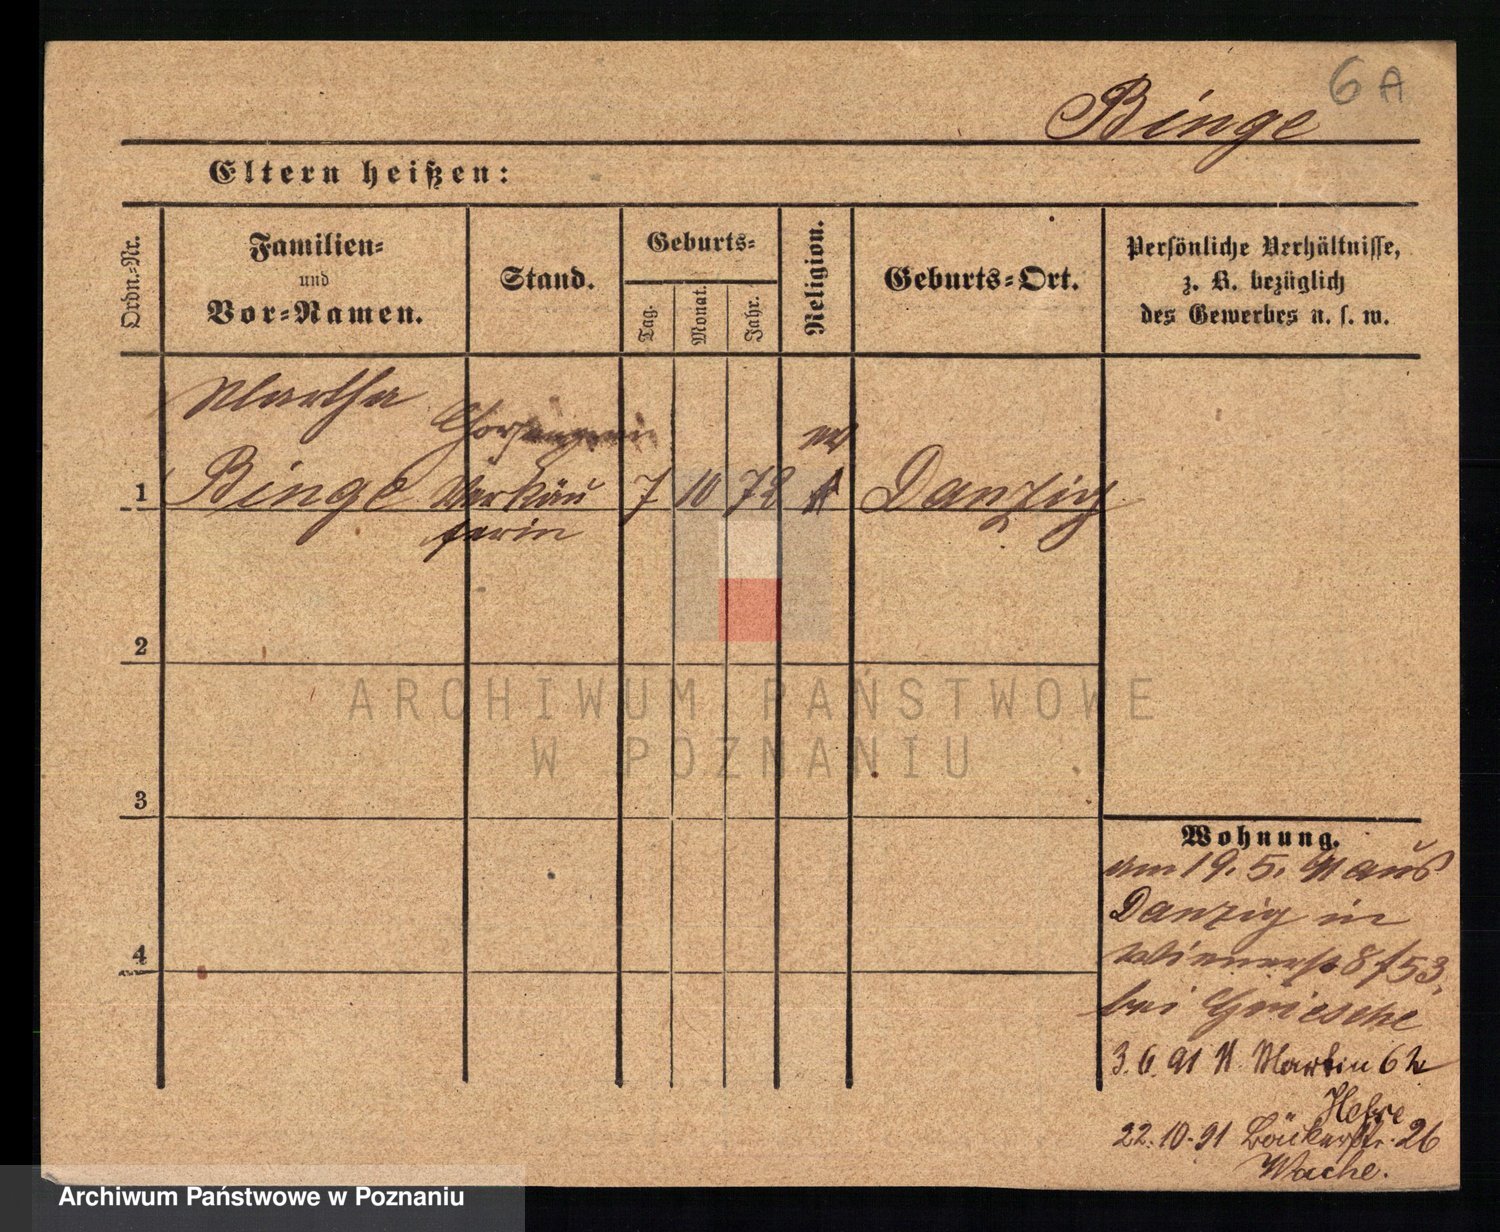 6 A
Binge
Eltern heißen:
Ordn.-Nr.
Familien-
und
Vor-Namen.
Stand.
Geburts-
Tag.
Monat.
Jahr.
Religion.
Geburts-Ort.
Persönliche Verhältnisse,
z. B. bezüglich
des Gewerbes u. s. w.
Martha
1 Binge Verkäu 7 10 72 Danzig
ferin
2
ARCHIWUM PAŃSTWOWE
W POZNANIU
3
Wohnung.
am 19. 5. 91 aus
Danzig in
Wienerst 8 / 53.
bei
4
3. 6. 91 Martin 62
22. 10. 91 Bäckerstr. 26
Wache.
Archiwum Państwowe w Poznaniu